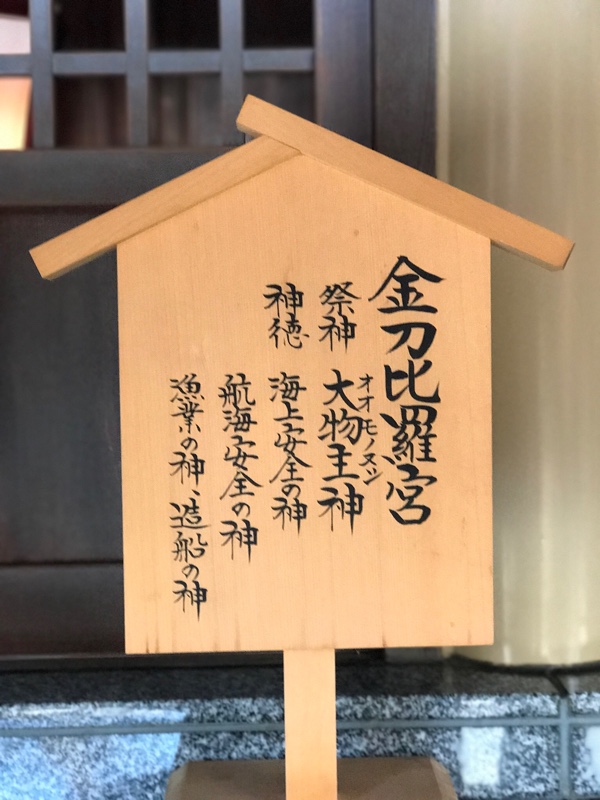 金刀比羅宮
オオモノヌシ
祭神 大物主神
神徳 海上安全の神
航海安全の神
漁業の神、造船の神